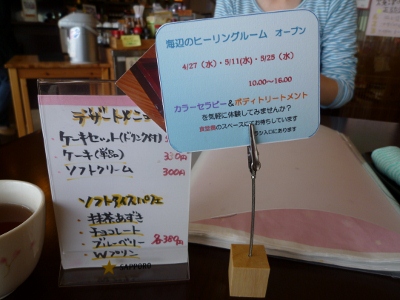 海辺のヒーリングルーム オープン
4/27（水）・5/11(水)・5/25（水）
10:00～16:00
カラーセラピー＆ボディトリートメント
を気軽に体験してみませんか？
のスペースにてお待ちしています
口にあります
デザートメニュー
ケーキセット(ドリンク付)
ケーキ(単品) 330円
ソフトクリーム 300円
ソフトアイスパフェ
抹茶あずき
チョコレート
ブルーベリー
Wプリン
各380円
SAPPORO